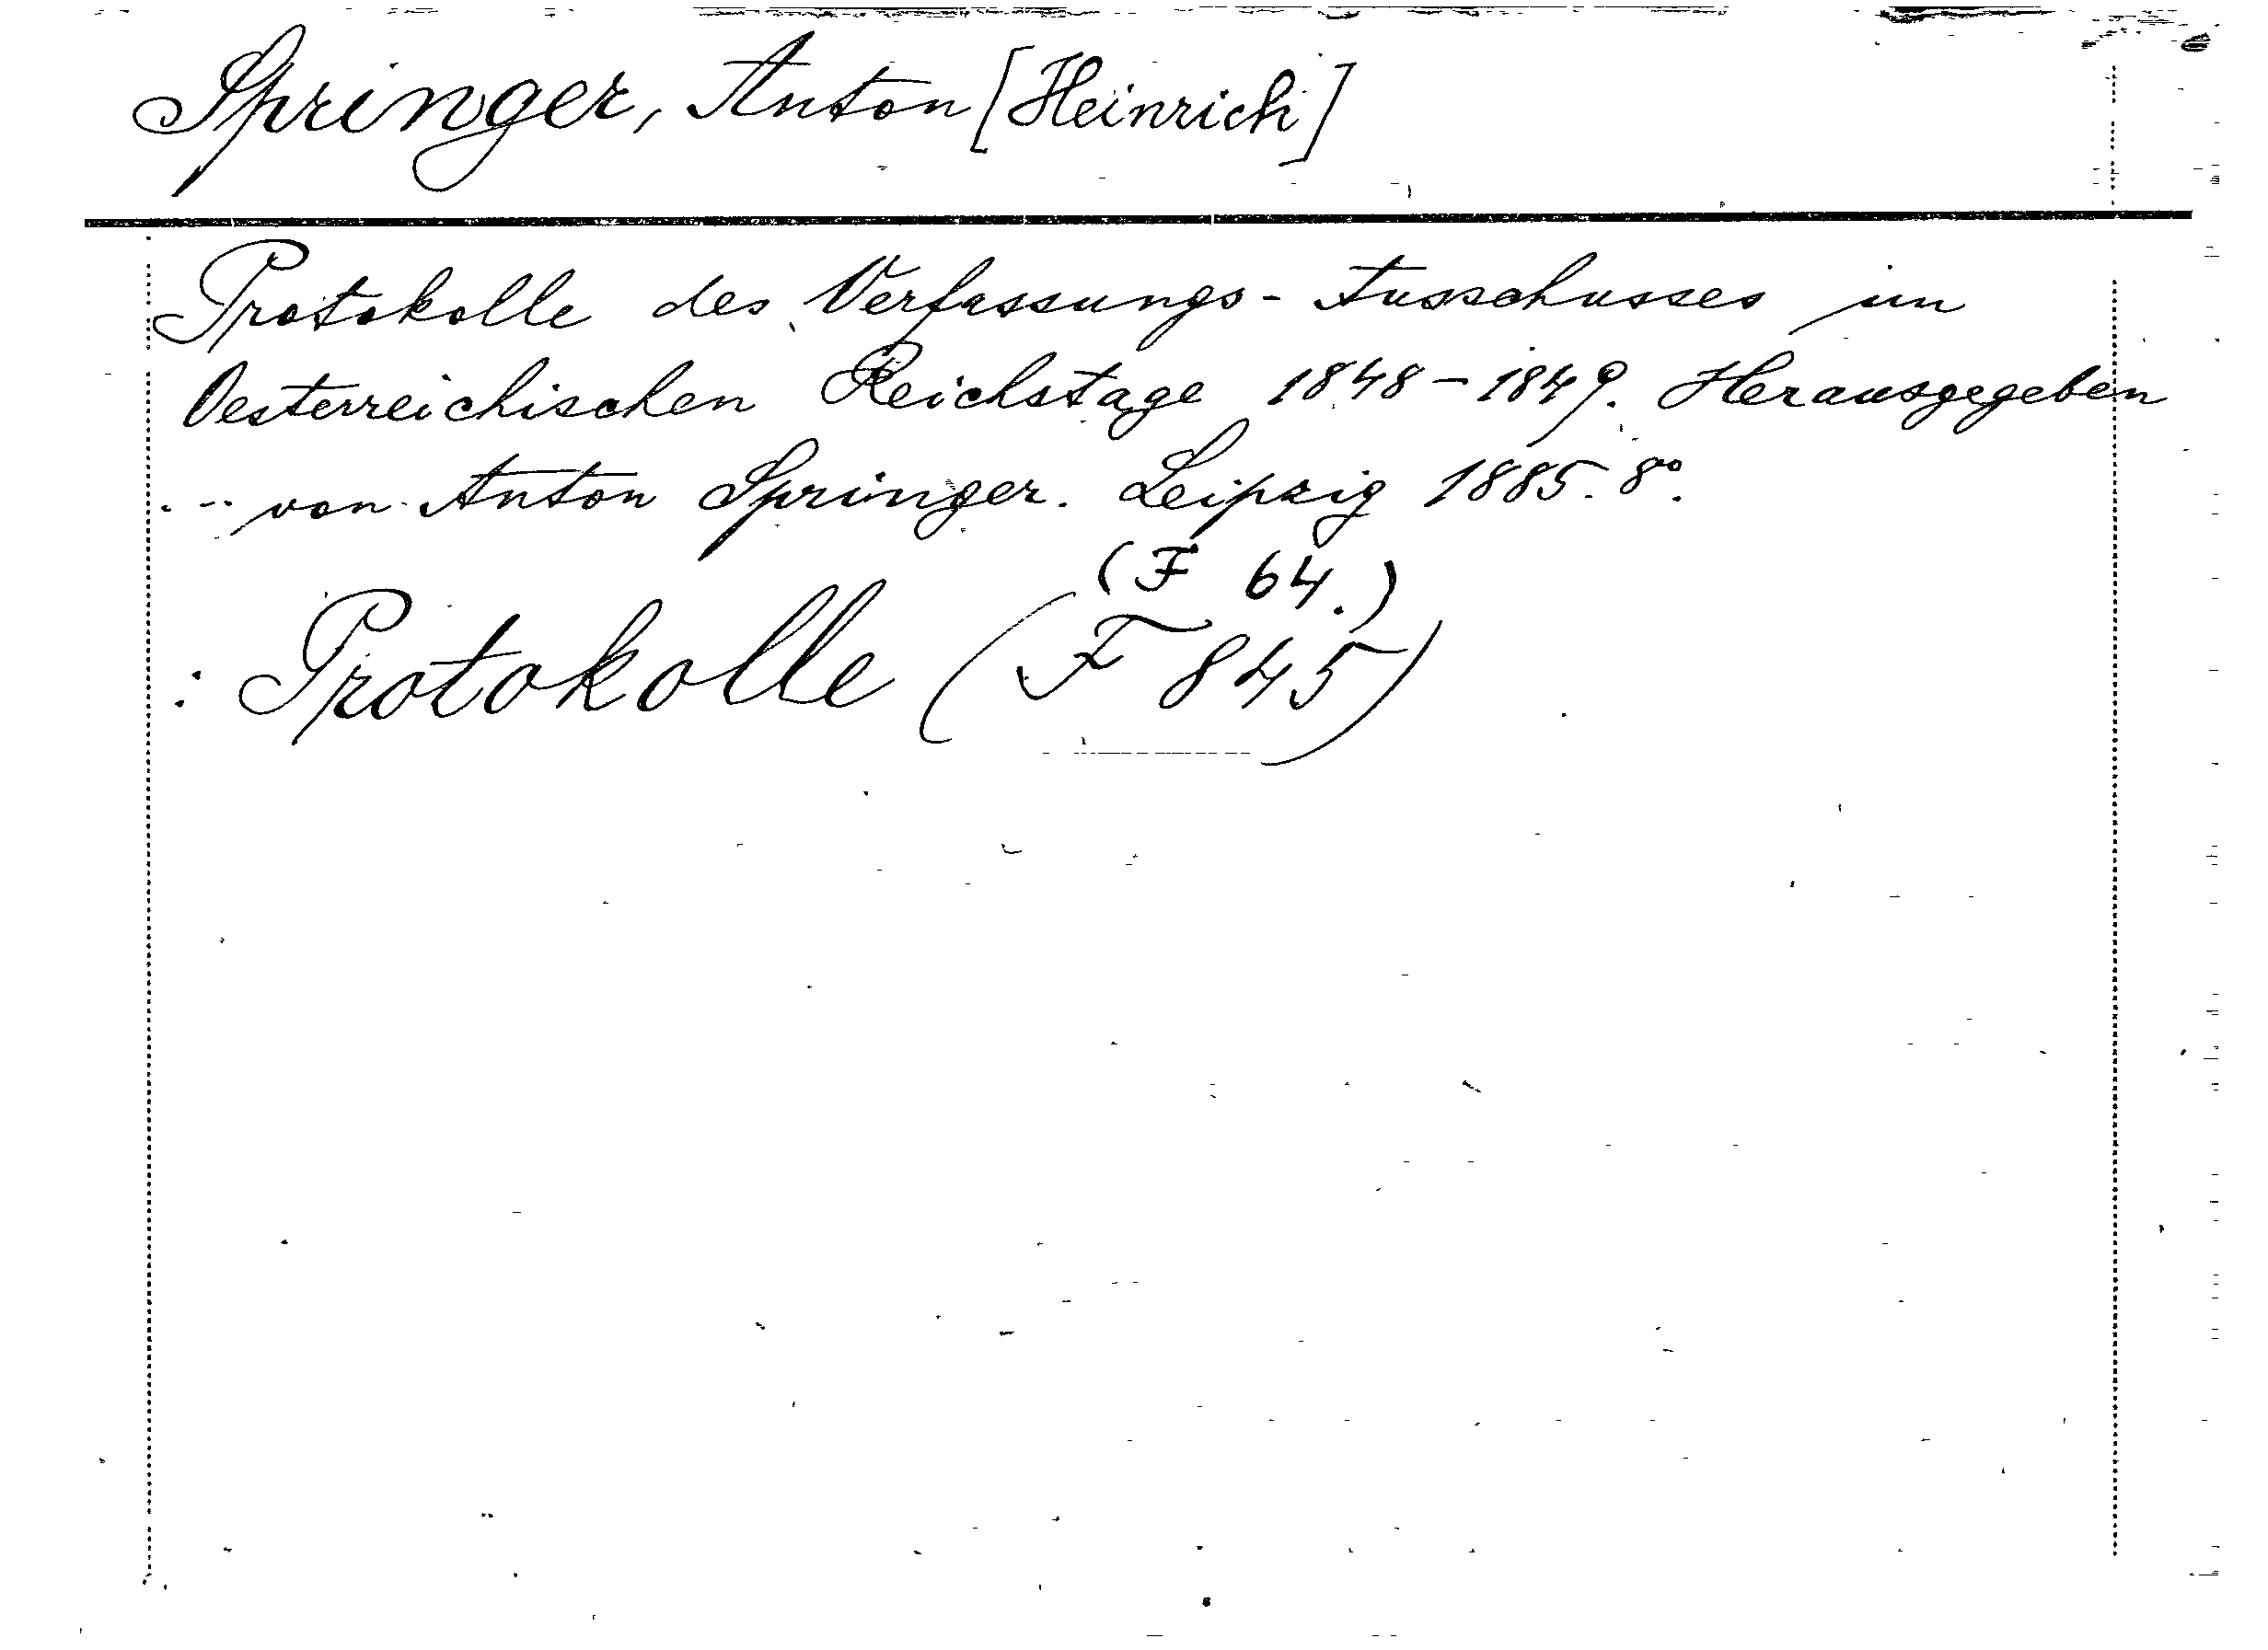 Springer, Anton [Heinrich]
Protokolle des Verfassungs-Ausschusses im
Oesterreichischen Reichstage 1848-1849. Herausgegeben
... von Anton Springer. Leipzig 1885. 8°.
(F 64.)
: Protokolle (F 845)